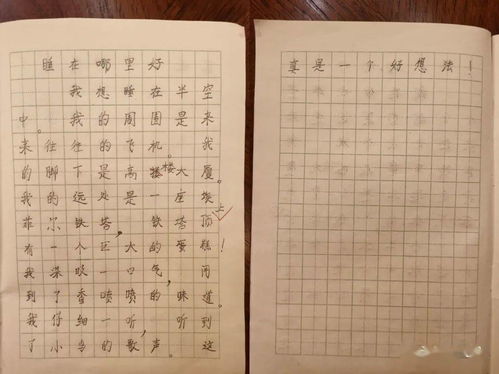 睡在哪里好
我想睡在半空
中。我的周围是来
来往往的飞机。我
的脚下是高楼大厦。
我的远处是一座埃
菲尔铁塔,铁塔顶上
有一个巨大的蛋糕!
我深吸一口气,闻
到了香喷喷的味道。
我仔细一听,听到
了小鸟的歌声。这
真是一个好想法!